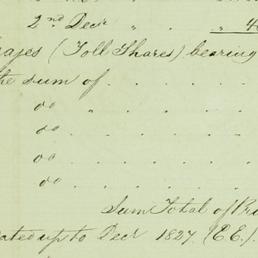 2nd Decr " . " 4
gages (Toll Shares) bearing
the sum of . . . . .
do . . . . .
do . . . . .
do . . . . .
do . . . . .
Sum Total of Pri
ated up to Decr 1827. (E.E.).